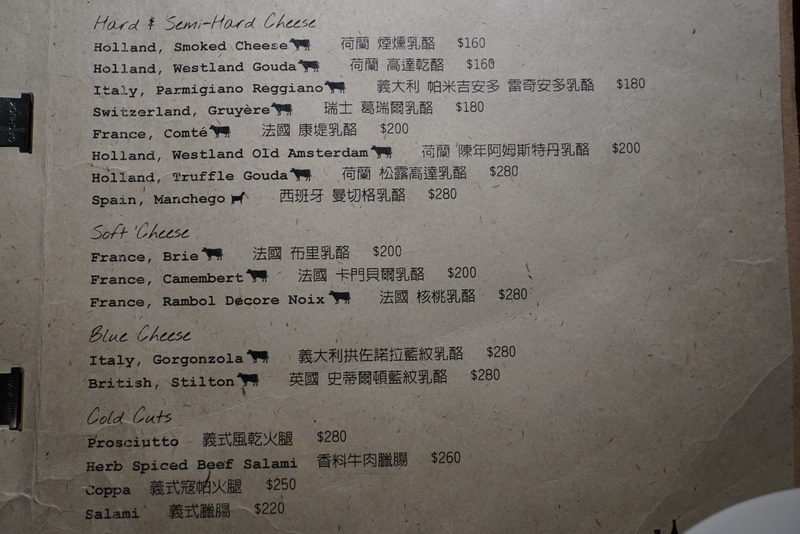 Hard & Semi-Hard Cheese
Holland, Smoked Cheese 荷蘭 煙燻乳酪 $160
Holland, Westland Gouda 荷蘭 高達乾酪 $160
Italy, Parmigiano Reggiano 義大利 帕米吉安多 雷奇安多乳酪 $180
Switzerland, Gruyère 瑞士 葛瑞爾乳酪 $180
France, Comté 法國 康堤乳酪 $200
Holland, Westland Old Amsterdam 荷蘭 陳年阿姆斯特丹乳酪 $200
Holland, Truffle Gouda 荷蘭 松露高達乳酪 $280
Spain, Manchego 西班牙 曼切格乳酪 $280
Soft Cheese
France, Brie 法國 布里乳酪 $200
France, Camembert 法國 卡門貝爾乳酪 $200
France, Rambol Decore Noix 法國 核桃乳酪 $280
Blue Cheese
Italy, Gorgonzola 義大利拱佐諾拉藍紋乳酪 $280
British, Stilton 英國 史蒂爾頓藍紋乳酪 $280
Cold Cuts
Prosciutto 義式風乾火腿 $280
Herb Spiced Beef Salami 香料牛肉臘腸 $260
Coppa 義式寇帕火腿 $250
Salami 義式臘腸 $220